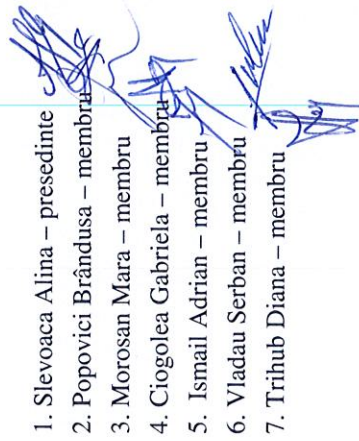 1. Slevoaca Alina – presedinte
2. Popovici Brândusa – membru
3. Morosan Mara – membru
4. Ciogolea Gabriela – membru
5. Ismail Adrian – membru
6. Vladau Serban – membru
7. Trihub Diana – membru